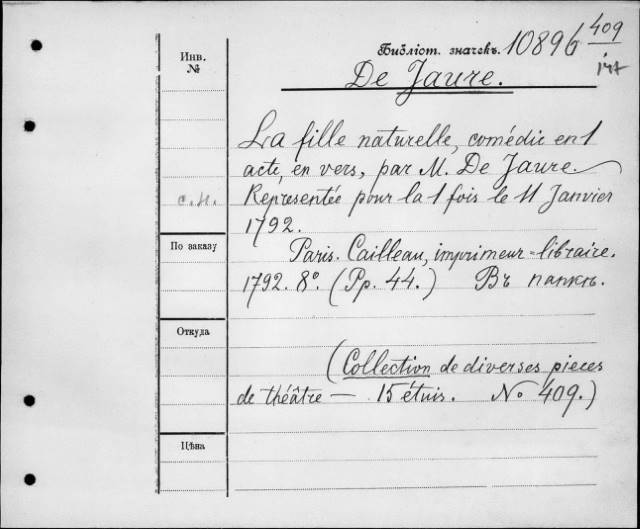 Инв.
№
Библіот. значекъ. 10896 409
147
De Jaure.
La fille naturelle, comédie en 1
acte, en vers, par M. De Jaure.
с.н. Representée pour la 1 fois le 11 Janvier
1792.
По заказу
Paris. Cailleau, imprimeur-libraire.
1792. 8º. (Pp. 44.) Въ папкѣ.
Откуда
(Collection de diverses pieces
de théâtre — 15 étuis. № 409.)
Цѣна